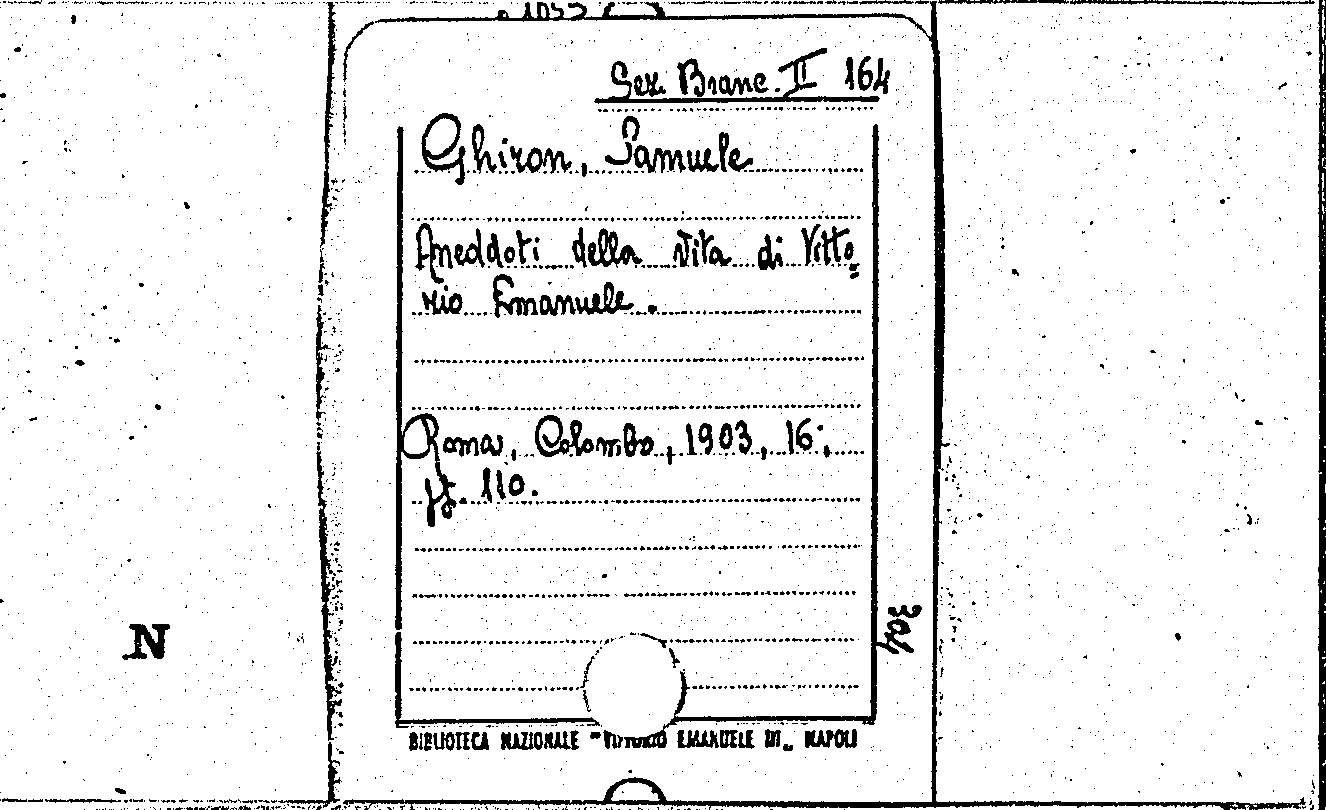 Sez. Branc. II 164
Ghiron, Samuele
Aneddoti della vita di Vitto=
rio Emanuele.
Roma, Colombo, 1903, 16°,
pp. 110.
304
N
BIBLIOTECA NAZIONALE "VITTORIO EMANUELE III" NAPOLI